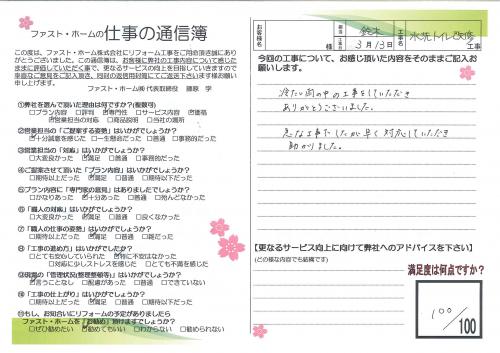 ファスト・ホームの仕事の通信簿
この度は、ファスト・ホーム株式会社にリフォーム工事をご用命頂き誠にあり
がとうございました。この通信簿は、お客様に弊社の工事内容について感じた
ままに評価していただく事で、更なるサービスの向上を目指していきますので
率直なご意見をご記入頂き、同封の返信用封筒にてご返送下さいます様お願い
申し上げます。
ファスト・ホーム㈱ 代表取締役 藤原 学
①弊社を選んで頂いた理由は何ですか？(複数可)
□プラン内容 □評判 □専門性 □サービス内容 □価格
□営業担当の対応 □商品説明 □当社の雰囲気
②営業担当の「ご提案する姿勢」はいかがでしょうか？
□十分誠意を感じた □一生懸命だった □普通 □事務的だった
③営業担当の「対応」はいかがでしょうか？
□大変良かった □満足 □普通 □事務的だった
④ご提案させて頂いた「プラン内容」はいかがでしたか？
□期待以上だった □満足 □普通 □期待以下だった
⑤プラン内容に「専門家の意見」はありましたでしょうか？
□かなりあった □十分あった □普通 □殆んどなかった
⑥「職人の対応」はいかがでしたでしょうか？
□大変良かった □満足 □普通 □良くなかった
⑦「職人の仕事の姿勢」はいかがでしょうか？
□期待以上だった □満足 □普通 □雑だった
⑧「工事の進め方」はいかがでしたか？
□とても安心していられた □特に不安はなかった
□対応に少しストレスを感じた □とても不満を感じた
⑨現場の「管理状況(整理整頓等)」はいかがでしたか？
□言うことなし □配慮があった □普通 □できていない
⑩「工事の仕上がり」はいかがでしょうか？
□期待以上だった □満足 □普通 □期待以下だった
⑪もし、お知合いにリフォームの予定がありましたら
ファスト・ホームを「お勧め」頂けますでしょうか？
□ぜひ勧めたい □勧めてもいい □わからない □勧められない
お客様名 鈴木 様 3月13日 工事名 水洗トイレ改修 工事
今回の工事について、お感じ頂いた内容をそのままご記入お
願いします。
冷たい雨の中の工事をしていただき
ありがとうございました。
急な工事でしたが早く対応していただき
助かりました。
【更なるサービス向上に向けて弊社へのアドバイスを下さい】
(どの様な内容でも結構です)
満足度は何点ですか？
100/100